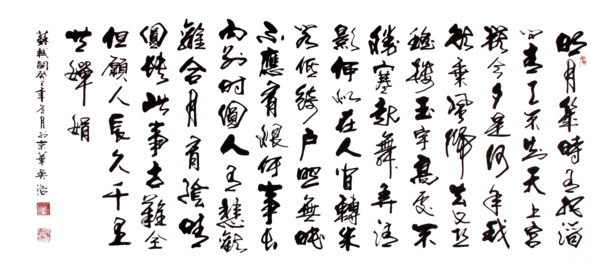 明月幾時有把酒
问青天不知天上宫
闕今夕是何年我
欲乘風歸去又恐
瓊樓玉宇高處不
勝寒起舞弄清
影何似在人间轉朱
阁低綺户照無眠
不應有恨何事长
向别时圓人有悲歡
離合月有陰晴
圓缺此事古難全
但願人長久千里
共嬋娟
蘇軾詞 年冬月於京華